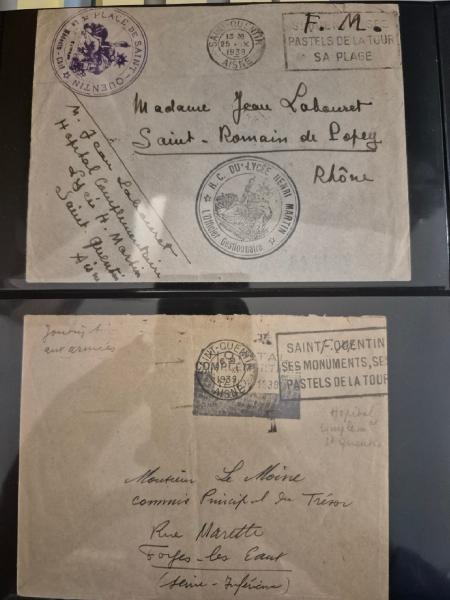 PLACE DE SAINT-QUENTIN
SAINT-QUENTIN
13 30
25 - IX
1939
AISNE
F. M.
PASTELS DE LA TOUR
SA PLAGE
Madame Jean Labouret
Saint-Romain de Popey
Rhône
M. Jean Labouret
Hopital Complémentaire
Lycée H. Martin
Saint Quentin
Aisne
H. C. DU LYCÉE HENRI MARTIN
L'Officier Gestionnaire
aux armées
SAINT-QUENTIN
1939
AISNE
F.M.
SAINT-QUENTIN
SES MONUMENTS, SES
PASTELS DE LA TOUR
Hopital
St Quentin
Monsieur Le Moine
commis Principal du Trésor
Rue Marette
Forges-les Eaux
(Seine-Inférieure)